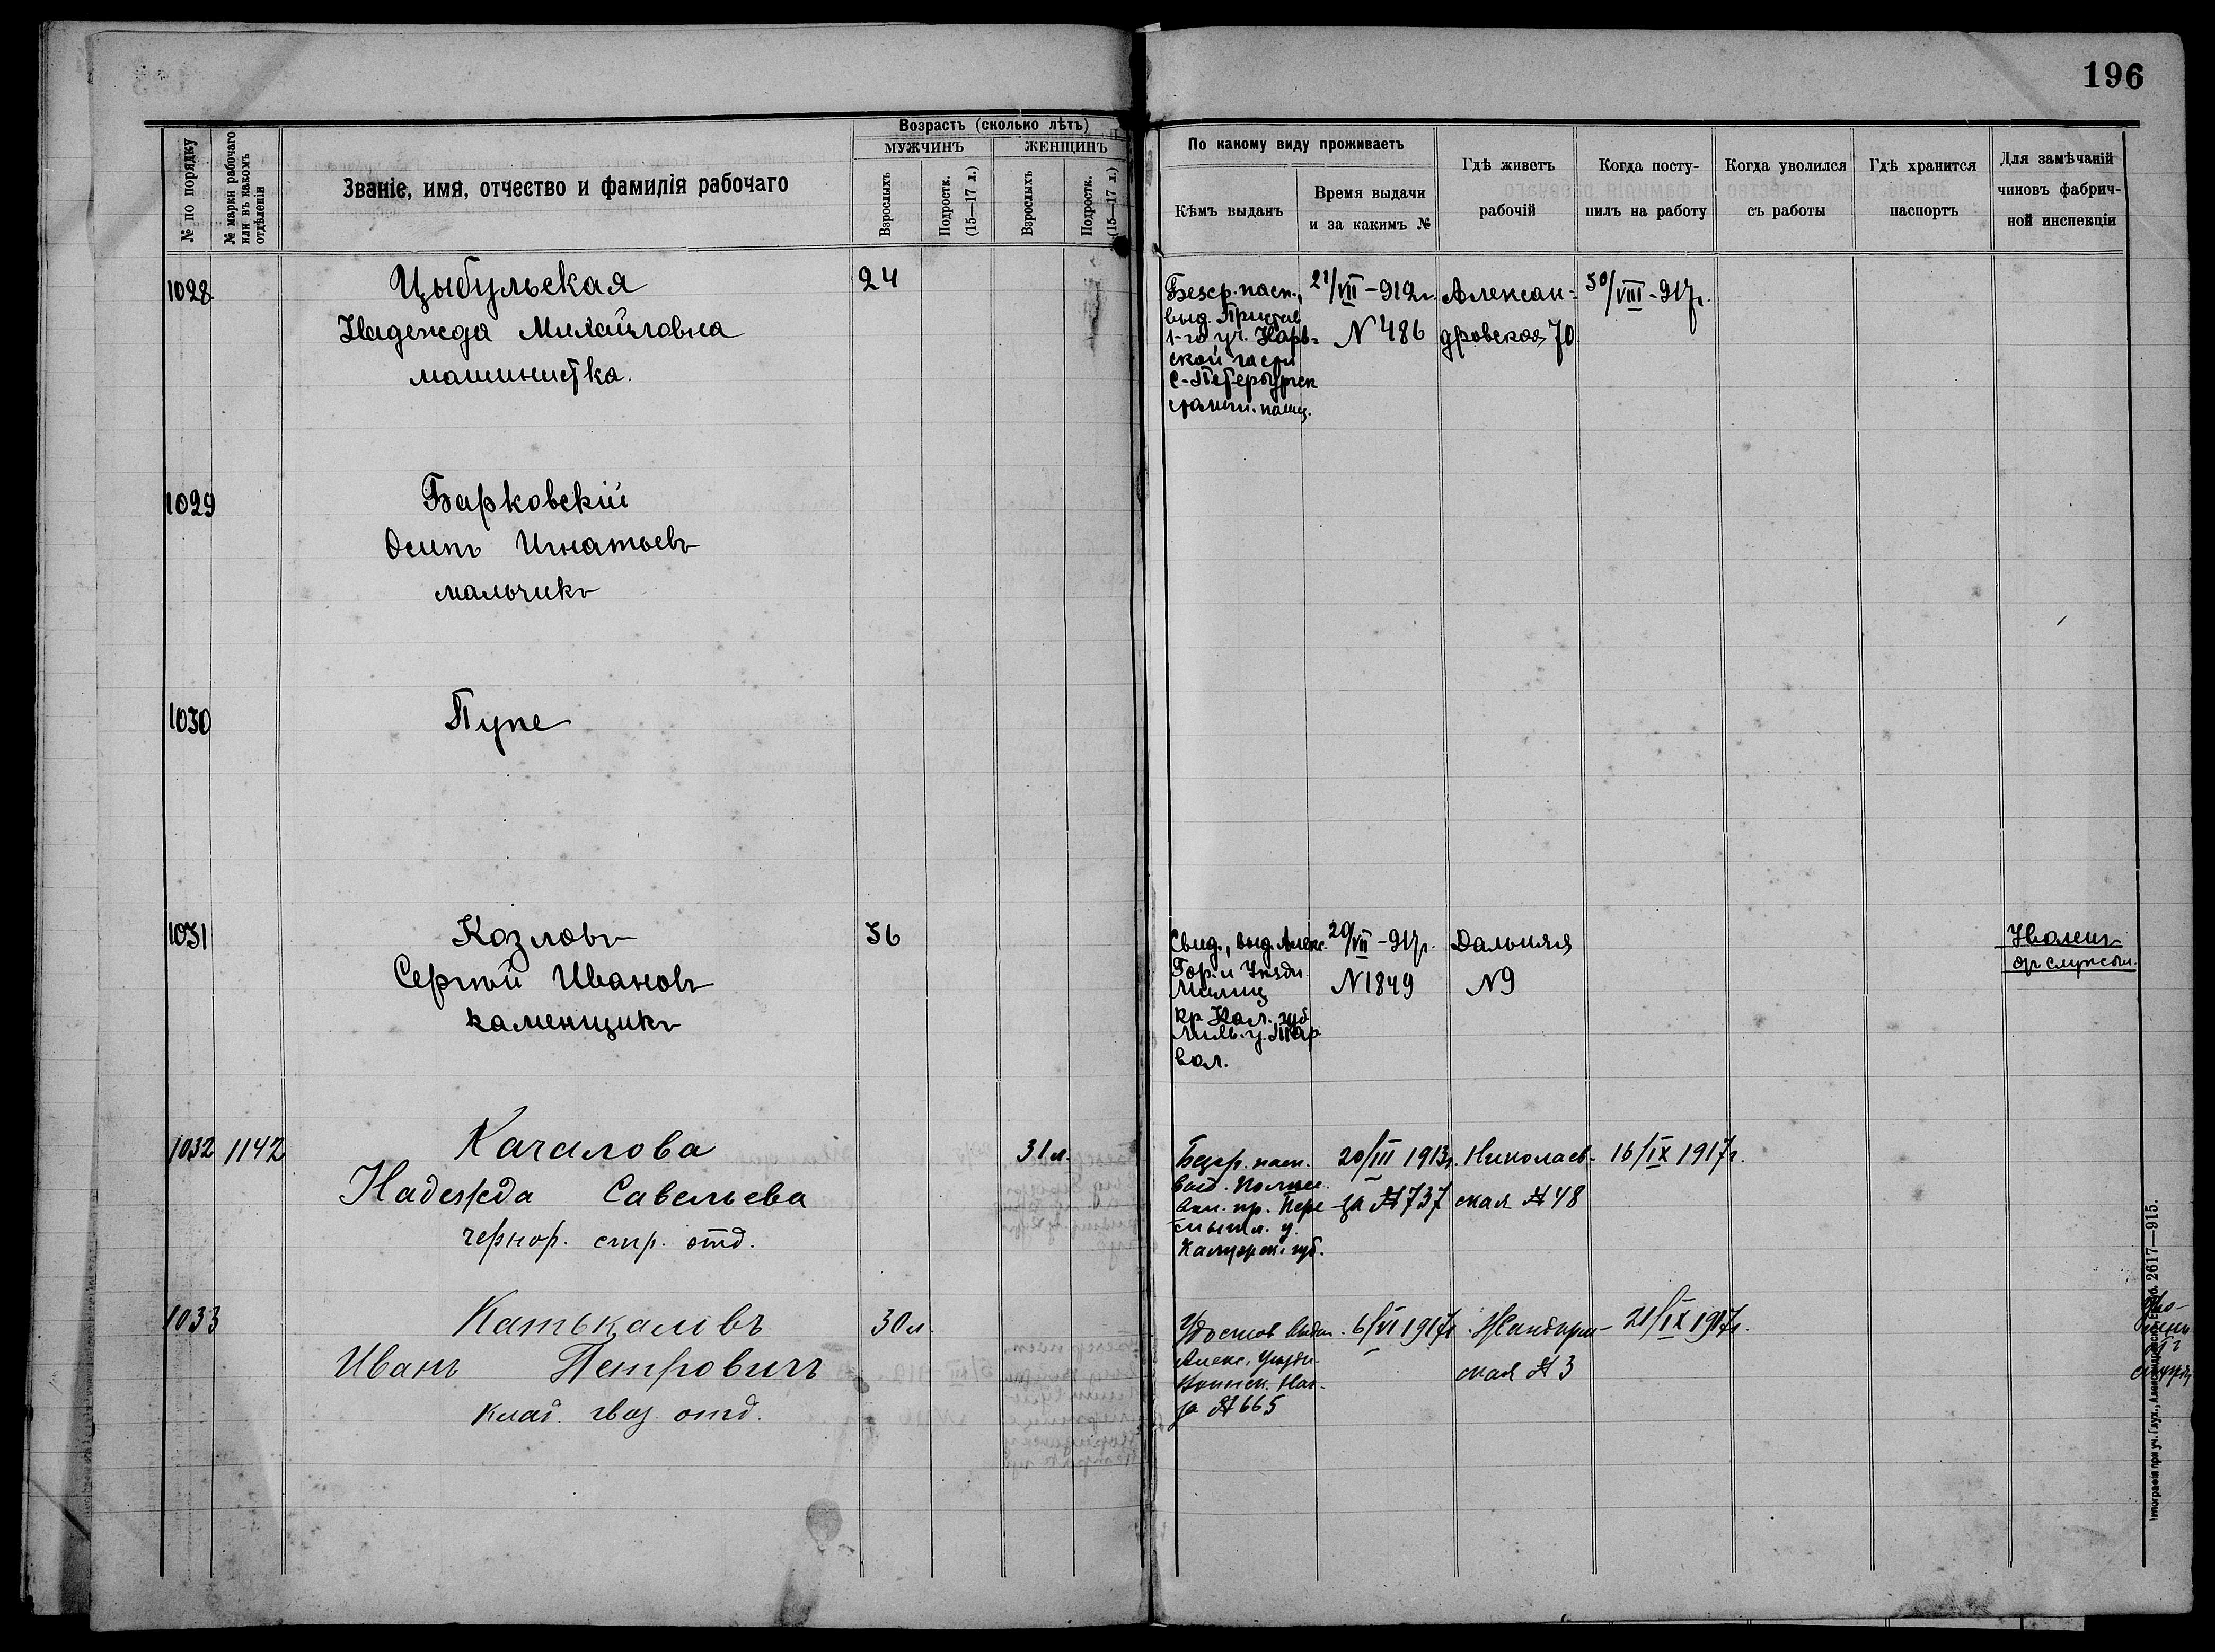 196
№ по порядку
№ марки рабочаго или въ какомъ отдѣленіи
Званіе, имя, отчество и фамилія рабочаго
Возрастъ (сколько лѣтъ)
МУЖЧИНЪ
ЖЕНЩИНЪ
Взрослыхъ
Подростк. (15—17 л.)
Взрослыхъ
Подростк. (15—17 л.)
По какому виду проживаетъ
Кѣмъ выданъ
Время выдачи
и за какимъ №
Гдѣ живетъ
рабочій
Когда посту-
пилъ на работу
Когда уволился
съ работы
Гдѣ хранится
паспортъ
Для замѣчаній
чиновъ фабрич-
ной инспекціи
1028
Цыбульская
Надежда Михайловна
машинистка.
24
Безср. пасп.,
выд. Пристав
1-го уч. Нарв-
ской части
С-Петербургск
21/VII-912г.
N 486
Алексан-
дровская 70
30/VIII-917г.
1029
Барковскій
Осипъ Игнатьевъ
мальчикъ
1030
Пупе
1031
Козловъ
Сергѣй Ивановъ
каменщикъ
36
Свид., выд. Алекс.
Гор. и Уѣздн.
Милиц
кр Кал. губ
вол.
20/VII-917г.
N 1849
Дальняя
N 9
Уволенъ
от службы.
1032 1142
Качалова
Надежда Савельева
чернор. стр. отд.
31 л.
Безср. пасп.
выд. Полиц.
Пере
мышл. у.
Калужск. губ.
20/III 1913г.
за № 737
Николаев-
ская № 48
16/IX 1917г.
1033
Катькаловъ
Иванъ Петровичъ
клад. гвоз. отд.
30 л.
Удостов видан.
Алекс. Уѣздн.
Воинск. Нач.
за № 665
6/VI 1917г.
ская № 3
21/IX 1917г.
2617—915.